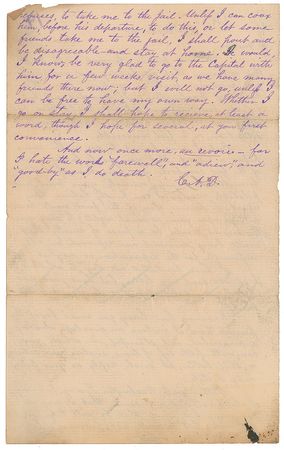 refuses, to take me to the jail. Unless I can coax
him, before his departure, to do this, or let some
friends take me to the jail, I shall pout and
be disagreeable and stay at home. It would,
I know, be very glad to go to the Capital with
him for a few weeks visit, as we have many
friends there now; but I will not go, unless I
can be free to have my own way. Whether I
go or stay, I shall hope to recieve, at least a
word, though I hope for several, at your first
convenience.
And now once more, au revoir — for
I hate the words "farewell", and "adieu", and
"good-by" as I do death.
C. N. D.